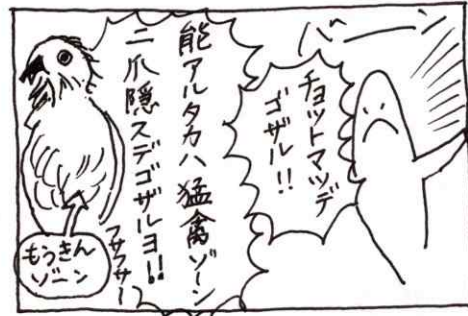 バーン
チョットマツデ
ゴザル!!
能アルタカハ猛禽ゾーン
ニ爪隠スデゴザルヨ!!
フサフサー
もうきん
ゾーン